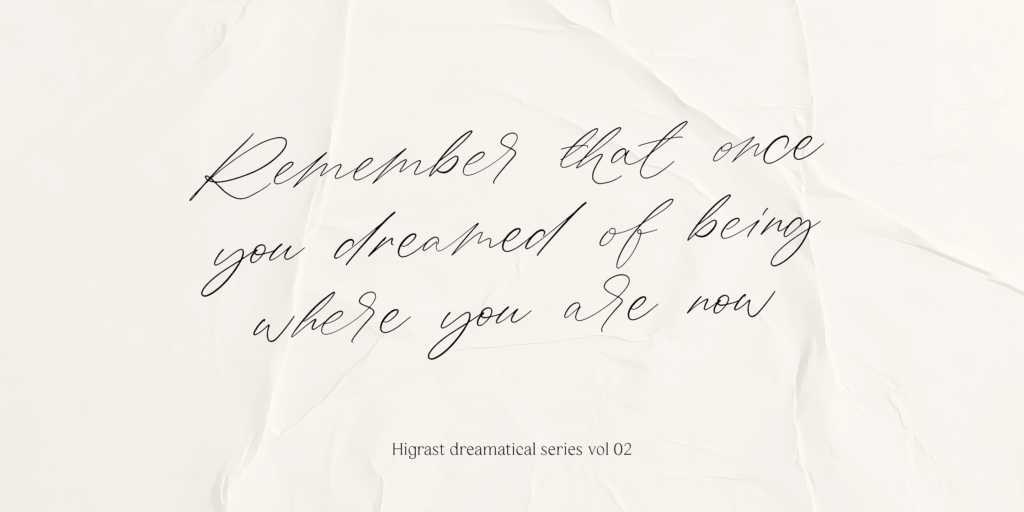 Remember that once
you dreamed of being
where you are now
Higrast dreamatical series vol 02